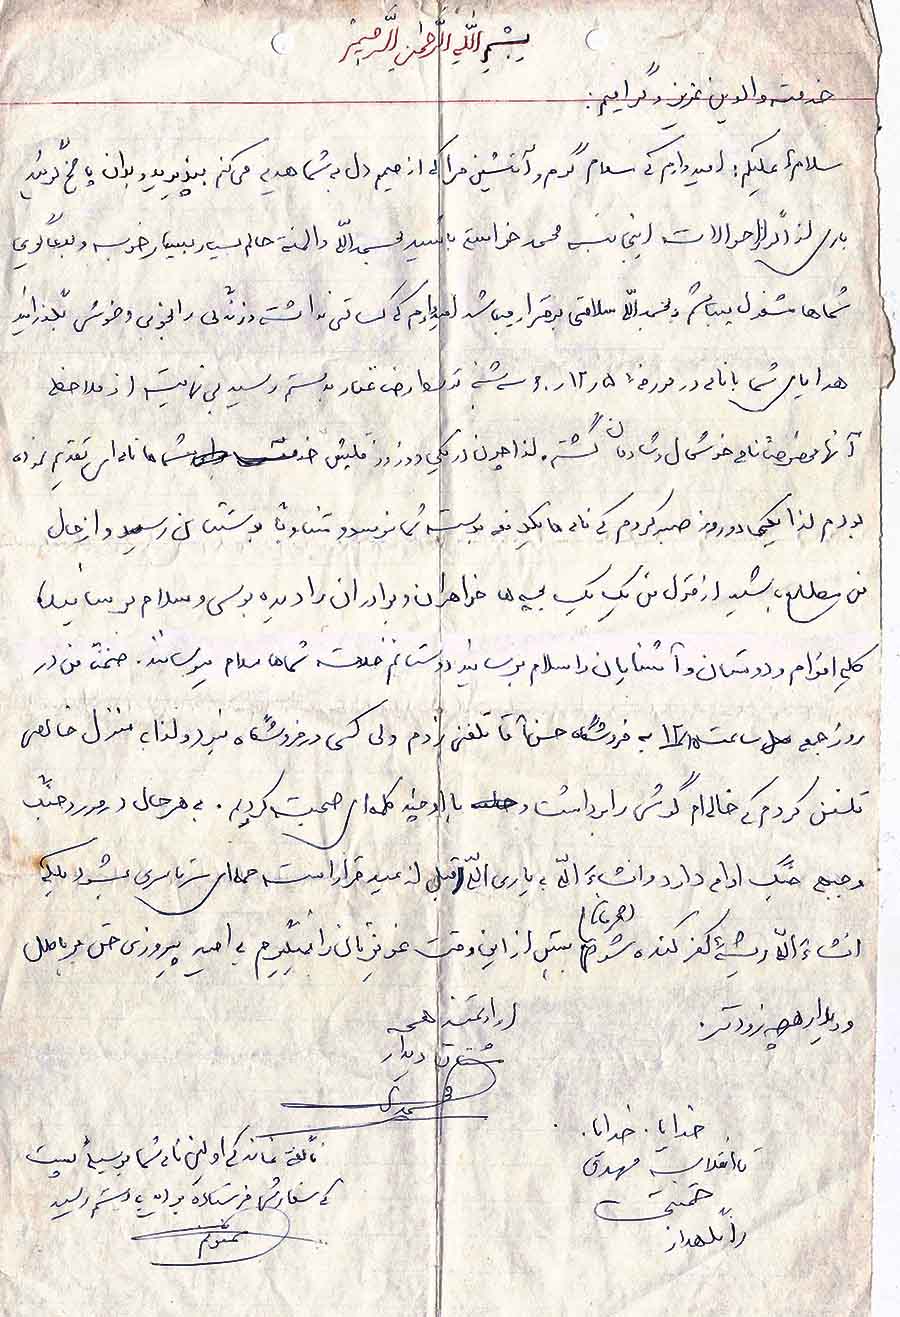 بسم الله الرحمن الرحیم
خدمت والدین عزیز و گرامیم:
سلامٌ علیکم: امیدوارم که سلام گرم و آتشین مرا که از صمیم دل به شما هدیه می‌کنم بپذیرید و بدان پاسخ گوئید
باری لذا اگر از احوالات اینجانب محمد خواسته باشید بحمدالله والمنة حالم بسیار بسیار خوب و بدعاگویی
شماها مشغول میباشم و بحمدالله سلامتی برقرار میباشد امیدوارم که کسالتی نداشته و زندگی را بخوبی و خوشی بگذرانید
هدایای شما با نامه در مورخه ۶۰/۱۲/۵ سه شنبه توسط رضا غفار بدستم رسید بی نهایت از ملاحظه
آنها مخصوصاً نامه خوشحال و شادمان گشته. لذا چون در یکی دو روز قبلش خدمت شما نامه‌ای تقدیم نموده
بودم لذا یکی دو روز صبر کردم که نامه ها یکدفعه بدست شما نرسد و متناوباً بدستتان رسید و از حال
من مطلع باشید از قول من یک یک بچه ها خواهران و برادران را دیده بوسی و سلام برسانید
کلیه اقوام و دوستان و آشنایان را سلام برسانید دوستانم خدمت شماها سلام میرسانند. ضمناً من در
روز جمعه ساعت ۱۲/۱۵ به فروشگاه حسن آقا تلفن زدم ولی کسی در فروشگاه نبود و لذا به منزل خاله‌ام
تلفن کردم که خاله‌ام گوشی را برداشت و با او چند کلمه‌ای صحبت کردیم. به هر حال در مورد جنگ
و جبهه جنگ ادامه دارد و انشاءالله به یاری الله قبل از عید قرار است حمله‌ای سرتاسری بشود بلکه
انشاءالله ریشهٔ کفر کنده شود (هرمان) بیش از این وقت عزیزتان را نمیگیرم به امید پیروزی حق بر باطل
و دیدار هر چه زودتر.
ارادتمند همه
مشتاق دیدار
محمد
خدایا. خدایا.
تا انقلاب مهدی
خمینی
را نگهدار
ناگفته نماند که اولین نامه شما بوسیلهٔ پست
که سفارشی فرستاده بودید بدستم رسید
ممنونم